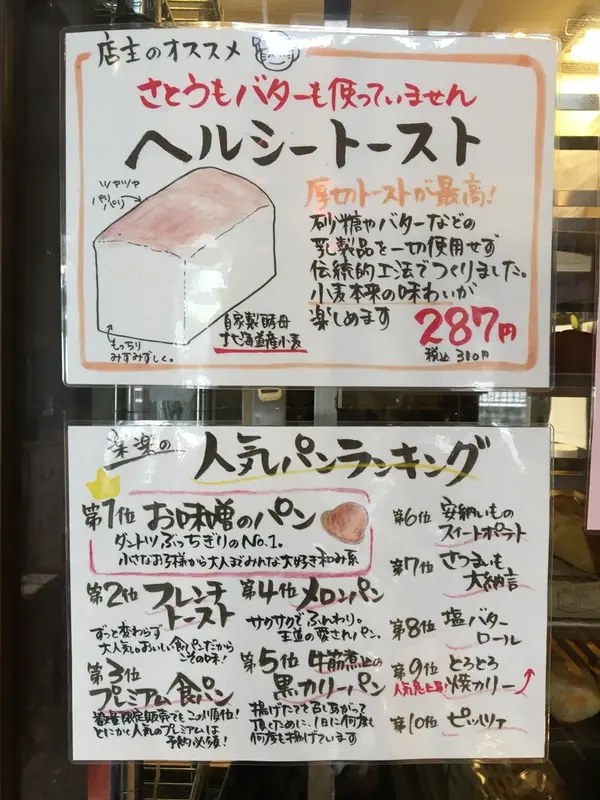 店主のオススメ
さとうもバターも使っていません
ヘルシートースト
ツヤツヤ
パリパリ
厚切トーストが最高!
砂糖やバターなどの
乳製品を一切使用せず
伝統的工法でつくりました。
小麦本来の味わいが
楽しめます
287円
税込310円
自家製酵母
北海道産小麦
もっちり
みずみずしく。
楽楽の
人気パンランキング
第1位 お味噌のパン
ダントツぶっちぎりのNo.1。
小さなお子様から大人までみんな大好き和み系
第2位 フレンチ
トースト
ずっと変わらず
大人気。おいしい食パンだから
こその味!
第3位
プレミアム食パン
数量限定販売でもこの順位!
とにかく人気のプレミアムは
予約必須!
第4位 メロンパン
サクサクでふんわり。
王道の愛されパン。
第5位 牛筋煮込の
黒カリーパン
揚げたてを召しあがって
頂くために、1日に何度も
何度も揚げています
第6位 安納いもの
スイートポテト
第7位 さつまいも
大納言
第8位 塩バター
ロール
第9位 とろとろ
人気急上昇! 焼カリー
第10位 ピッツァ